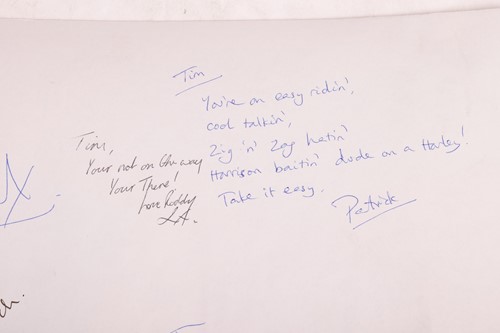 Tim
You're an easy ridin',
cool talkin',
Zig 'n' Zag hatin'
Harrison baitin' dude on a Harley!
Take it easy.
Patrick
Tim,
Your not on the way
Your There!
love Roddy